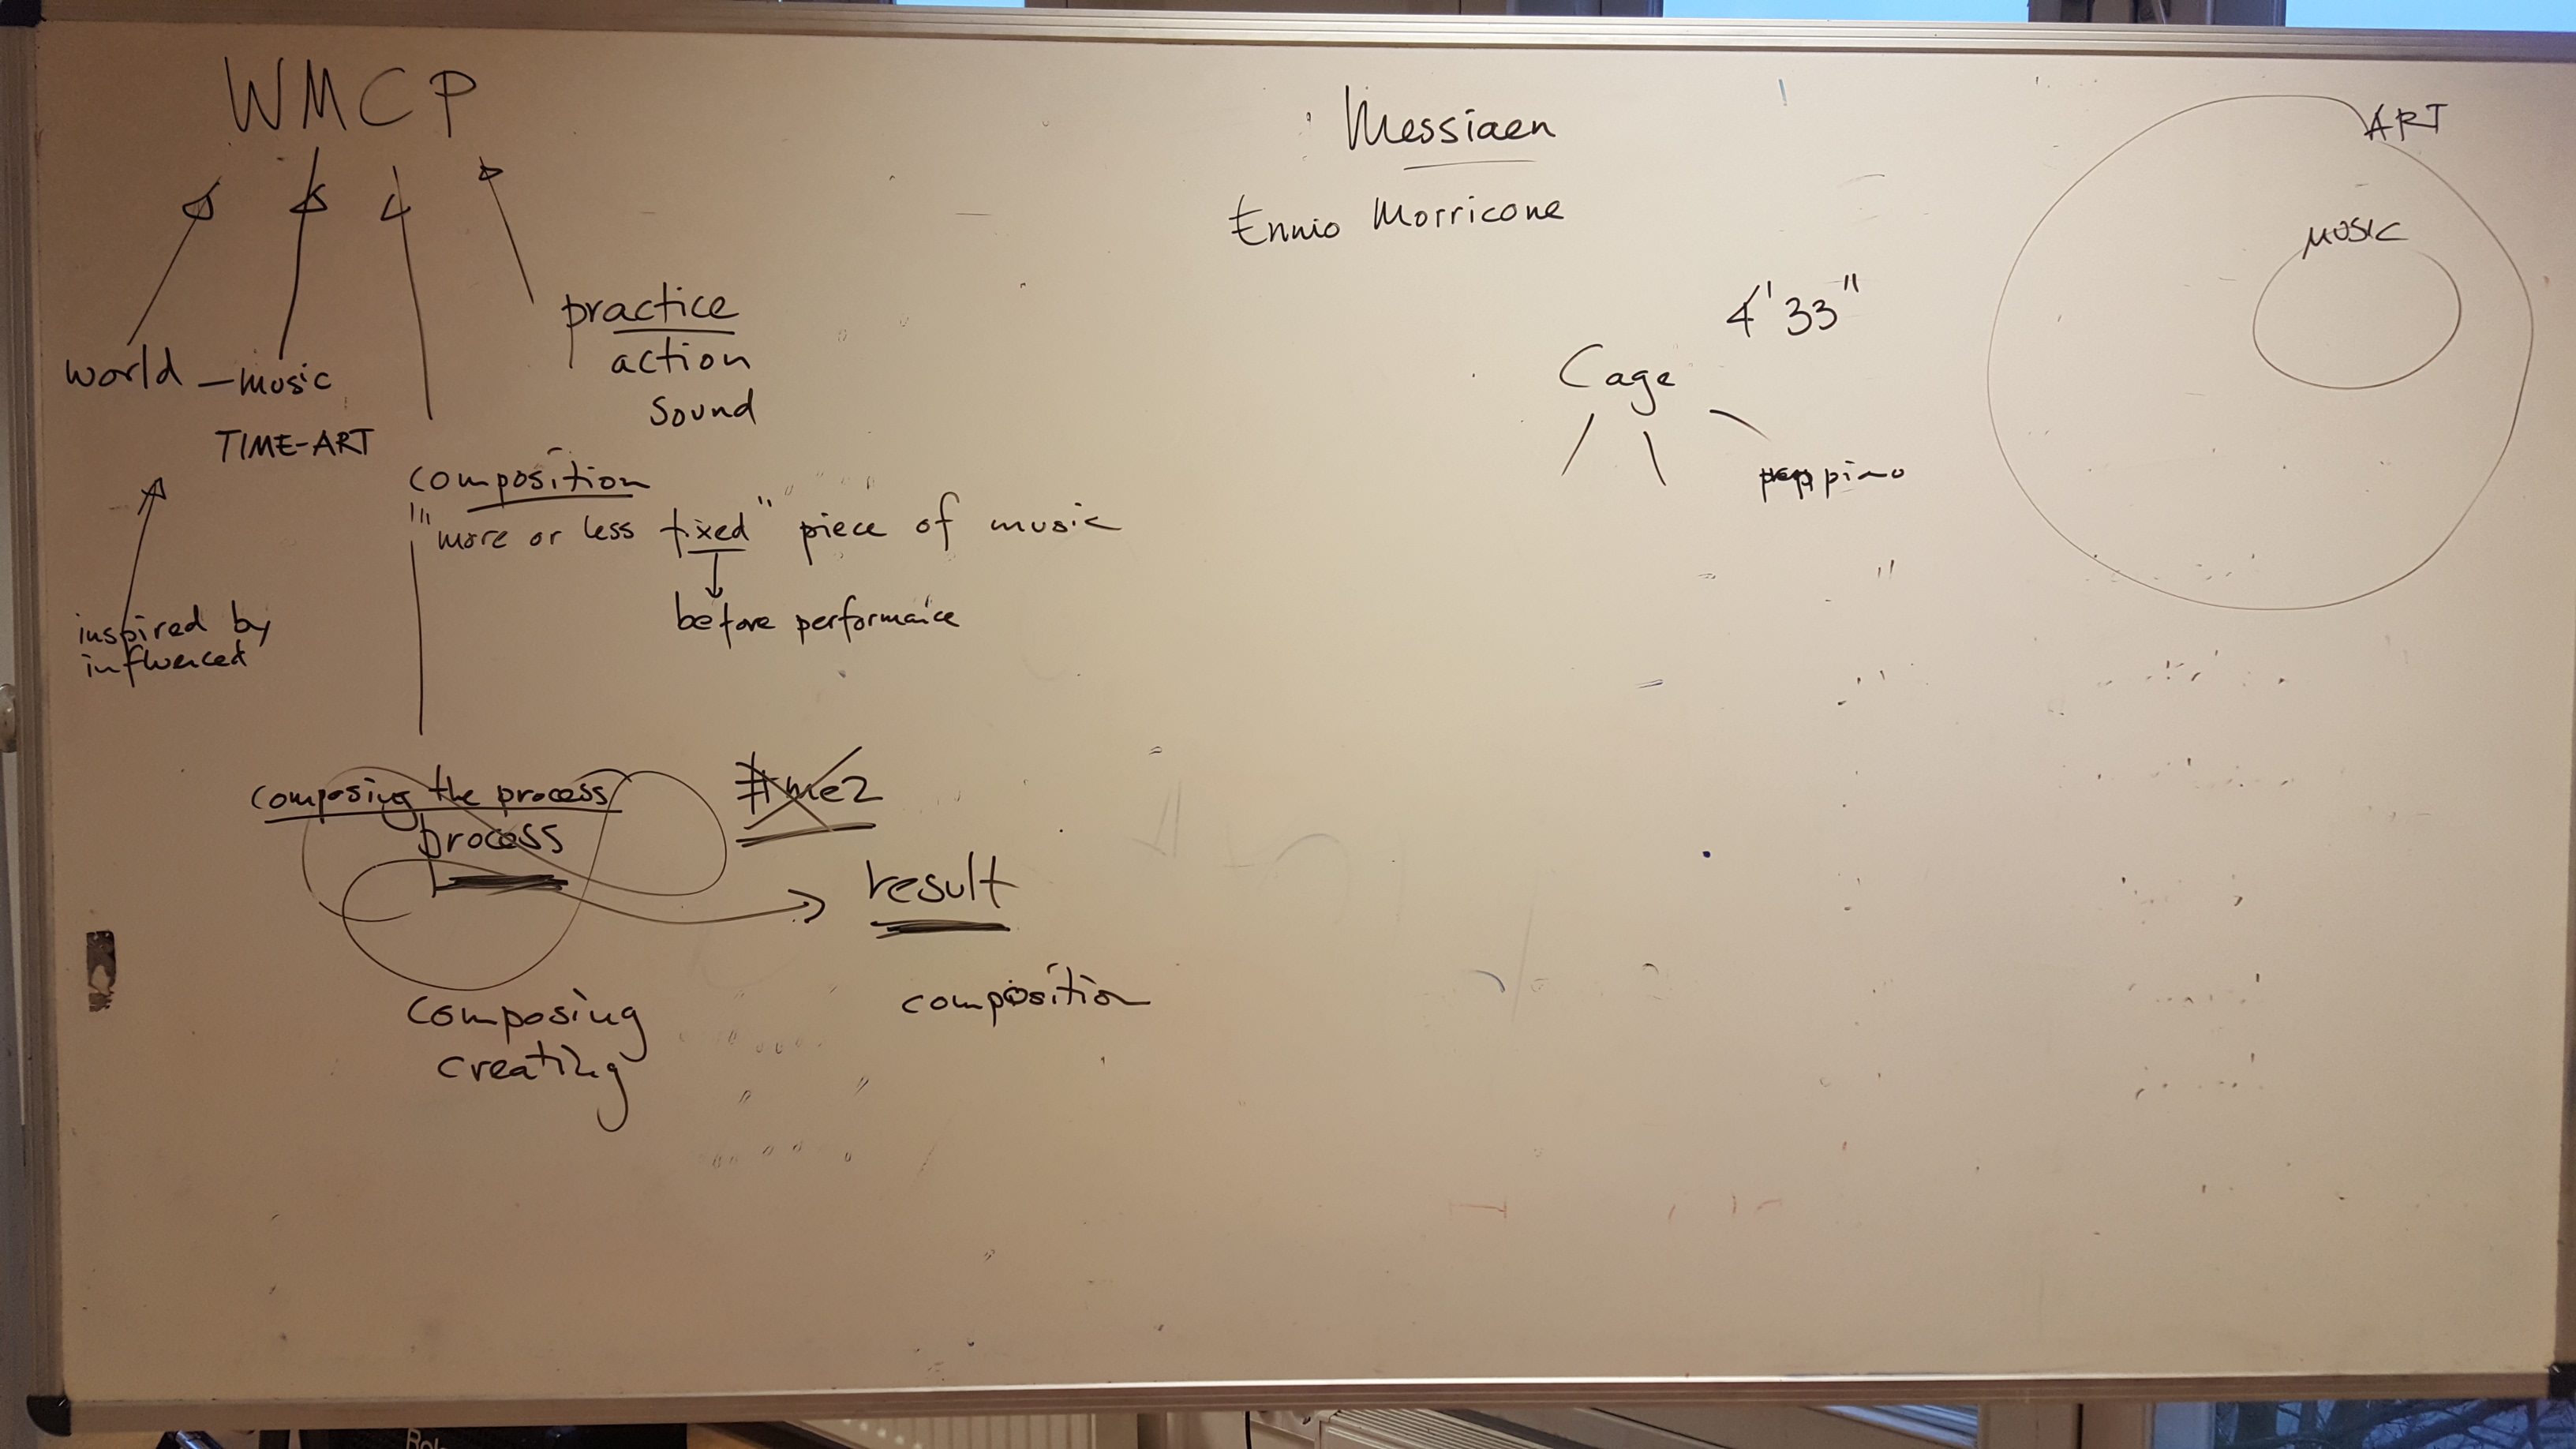 WMCP
world – music
TIME-ART
inspired by
influenced
practice
action
sound
composition
"more or less fixed" piece of music
before performance
composing the process
process
composing
creating
#me2
result
composition
Messiaen
Ennio Morricone
4'33"
Cage
ART
MUSIC